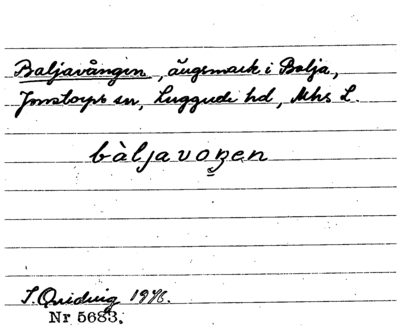 Baljavången, ängsmark i Balja,
Jonstorps sn, Luggude hd, Mhs L.
bàljavoŋen
I. Quiding 1976.
Nr 5683.